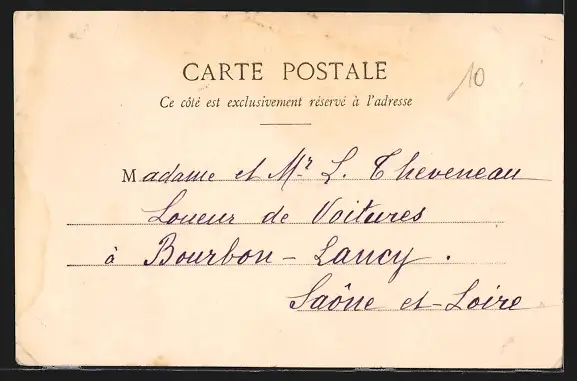 CARTE POSTALE
Ce côté est exclusivement réservé à l'adresse
10
Madame et Mr L. Theveneau
Loueur de Voitures
à Bourbon - Lancy .
Saône et-Loire